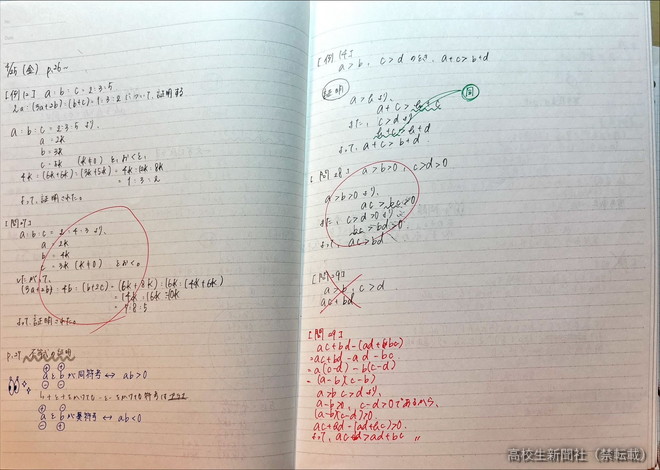 4/25 (金) p.26~
[例12] a:b:c=2:3:5
2a:(3a+2b):(b+c)=1:3:2 について、証明する
a:b:c=2:3:5より、
a=2k
b=3k
c=5k (k≠0) とおくと、
4k:(6k+6k):(3k+5k)=4k:12k:8k
=1:3:2
よって、証明された。
[問27]
a:b:c=2:4:3より、
a=2k
b=4k
c=3k (k≠0) とおく。
したがって、
(3a+2b):4b:(b+2c)=(6k+8k):16k:(4k+6k)
=14k:16k:10k
=7:8:5
よって、証明された。
p.27
⊕ ⊕
aとbが同符号⇔ab>0
⊖ ⊖
⊕ ⊖
aとbが異符号⇔ab<0
⊖ ⊕
[例14]
a>b, c>dのとき、a+c>b+d
証明
a>bより、
a+c>b+c
同
また、c>dより
b+c>b+d
よって、a+c>b+d
[問28] a>b>0, c>d>0
a>b>0より、
ac>bc>0
また、c>d>0より
bc>bd>0
よって、ac>bd
[問29]
a>b, c>d
ac+bd
[問29]
ac+bd-(ad+bc)
=ac+bd-ad-bc
=a(c-d)-b(c-d)
=(a-b)(c-d)
a>b c>dより、
a-b>0, c-d>0であるから、
(a-b)(c-d)>0
ac+bd-(ad+bc)>0
よって、ac+bd>ad+bc 〃
高校生新聞社(禁転載)